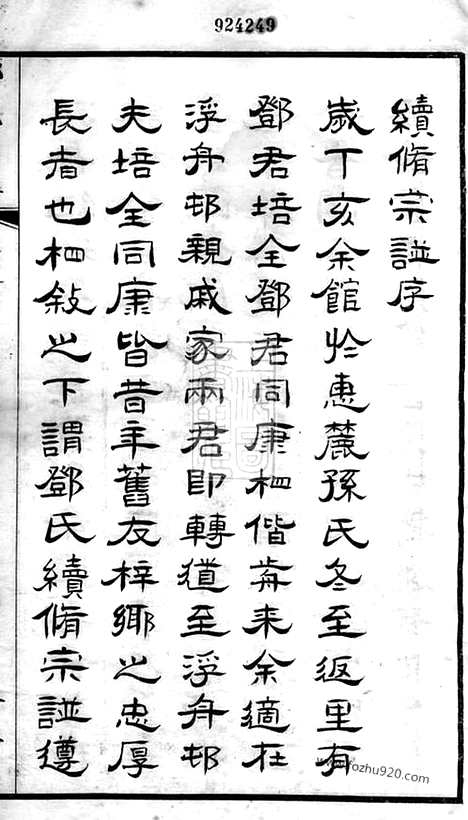 924249
續脩宗譜序
歲丁亥余館於惠麓孫氏冬至返里有
鄧君培全鄧君同康相偕歬來余適在
浮舟邨親戚家兩君即轉道至浮舟邨
夫培全同康皆昔年舊友梓鄉之忠厚
長者也相敍之下謂鄧氏續脩宗譜遵
www.fozhu920.com